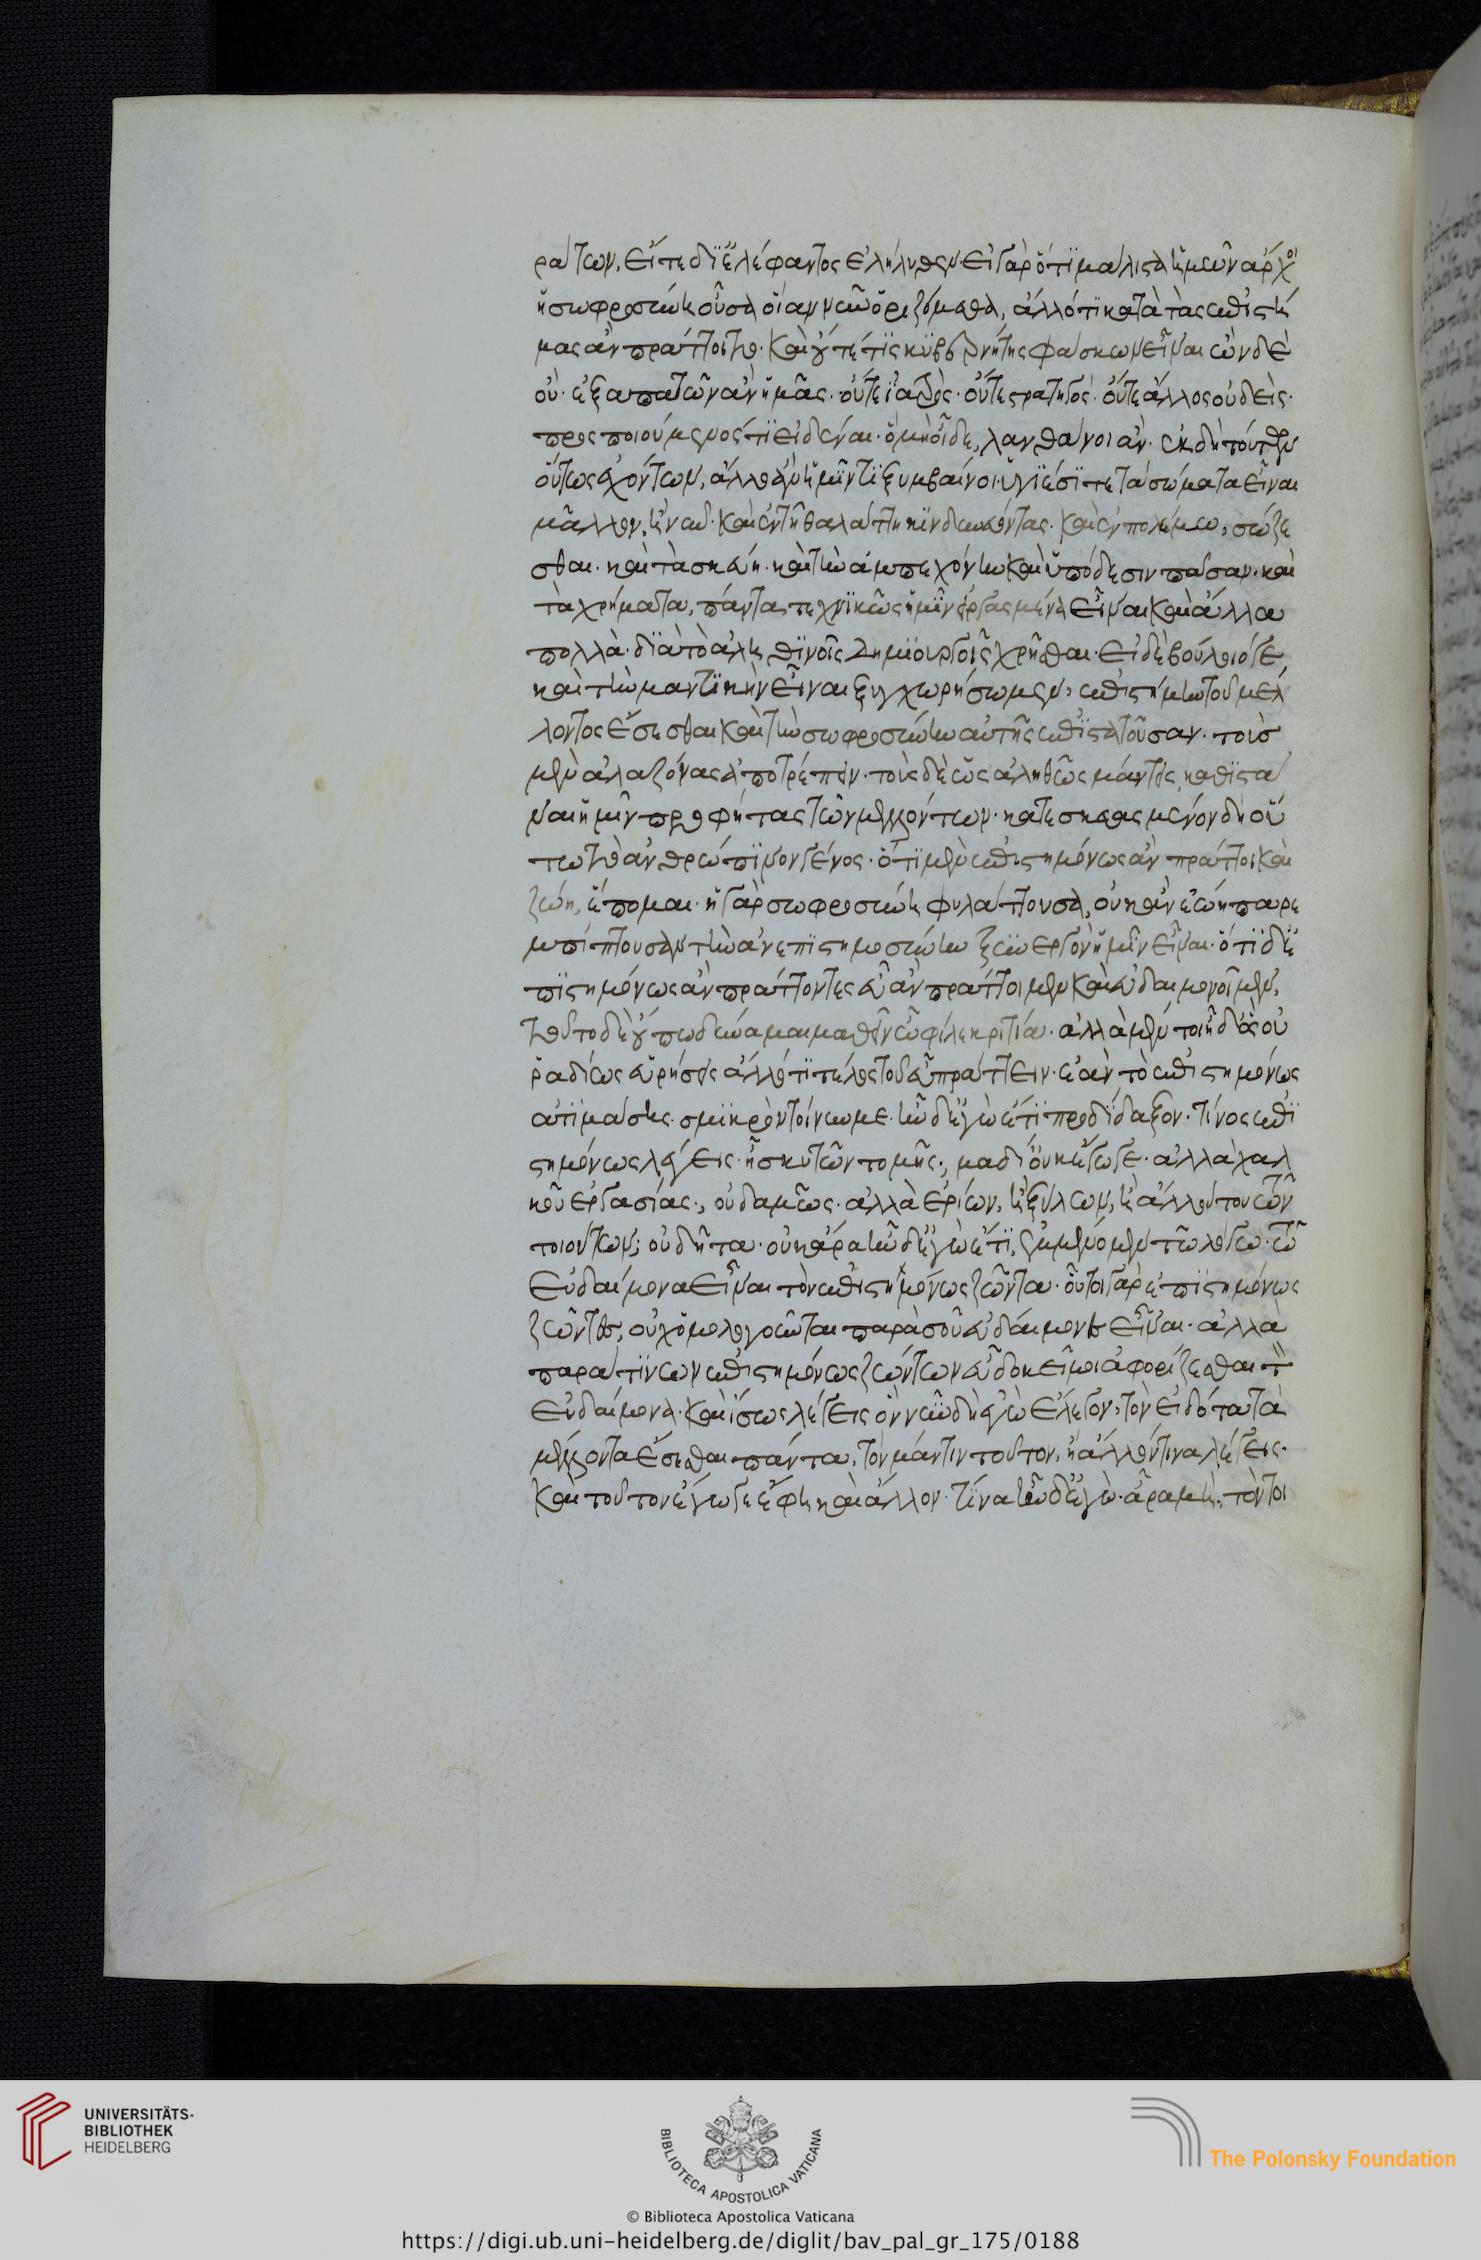 ράτων, εἴτε δι' ἐλέφαντος ἐλήλυθεν· εἰ γὰρ ὅτι μάλιστα ἡμῶν ἄρχοι
ἡ σωφροσύνη οὖσα οἵαν νῦν ὁριζόμεθα, ἄλλό τι κατὰ τὰς ἐπιστή
μας ἂν πράττοιτο· καὶ οὔτε τίς κυβερνήτης φάσκων εἶναι ὢν δὲ
οὐ· ἐξαπατῶν ἂν ἡμᾶς· οὔτε ἰατρὸς· οὔτε στρατηγὸς· οὔτε ἄλλος οὐδεὶς·
προσποιούμενός τι εἰδέναι· ὃ μὴ οἶδε, λανθάνοι ἄν· ἐκ δὴ τούτων
οὕτως ἐχόντων, ἄλλο ἂν ἡμῖν τι ξυμβαίνοι· ὑγιέσί τε τὰ σώματα εἶναι
μᾶλλον, ἢ νῦν· καὶ ἐν τῇ θαλάττῃ κινδυνεύοντας· καὶ ἐν πολέμῳ, σώζε
σθαι· καὶ τὰ σκεύη· καὶ τὴν ἀμπεχόνην καὶ ὑπόδεσιν πᾶσαν· καὶ
τὰ χρήματα, πάντα τεχνικῶς ἡμῖν εἰργασμένα εἶναι καὶ ἄλλα
πολλὰ· διὰ τὸ ἀληθινοῖς δημιουργοῖς χρῆσθαι· εἰ δὲ βούλοιό γε,
καὶ τὴν μαντικὴν εἶναι ξυγχωρήσωμεν, ἐπιστήμην τοῦ μέλ
λοντος ἔσεσθαι καὶ τὴν σωφροσύνην αὐτῆς ἐπιστατοῦσαν· τοὺς
μὲν ἀλαζόνας ἀποτρέπειν· τοὺς δὲ ὡς ἀληθῶς μάντεις, καθιστά
ναι ἡμῖν προφήτας τῶν μελλόντων· κατεσκευασμένον δὴ οὕ
τω τὸ ἀνθρώπινον γένος· ὅτι μὲν ἐπιστημόνως ἂν πράττοι καὶ
ζώη, ἕπομαι· ἡ γὰρ σωφροσύνη φυλάττουσα, οὐκ ἂν ἐώη παρε
μπίπτουσαν τὴν ἀνεπιστημοσύνην ξυνεργὸν ἡμῖν εἶναι· ὅτι δ' ἐ
πιστημόνως ἂν πράττοντες εὖ ἂν πράττοιμεν καὶ εὐδαιμονοῖμεν,
τοῦτο δὲ οὔπω δυνάμαι μαθεῖν ὦ φίλε κριτία· ἀλλὰ μέν τοι ἦ δ' ὃς οὐ
ῥαδίως εὑρήσεις ἄλλό τι τέλος τοῦ εὖ πράττειν· ἐὰν τὸ ἐπιστημόνως
ἀτιμάσῃς· σμικρὸν τοίνυν με· ἦν δ' ἐγὼ ἔτι προδίδαξον· τίνος ἐπι
στημόνως λέγεις· ἢ σκυτῶν τομῆς·, μὰ δί' οὐκ ἔγωγε· ἀλλὰ χαλ
κοῦ ἐργασίας·, οὐδαμῶς· ἀλλὰ ἐρίων, ἢ ξύλων, ἢ ἄλλου του τῶν
τοιούτων; οὐ δῆτα· οὐκ ἄρα ἦν δ' ἐγὼ ἔτι, ἐμμένομεν τῷ λόγῳ· τῷ
εὐδαίμονα εἶναι τὸν ἐπιστημόνως ζῶντα· οὗτοι γὰρ ἐπιστημόνως
ζῶντες, οὐχ ὁμολογοῦνται παρὰ σοῦ εὐδαίμονες εἶναι· ἀλλὰ
παρά τινων ἐπιστημόνως ζώντων εὖ δοκεῖ μοι ἀφορίζεσθαι τὸν
εὐδαίμονα· καὶ ἴσως λέγεις ὃν νῦν δὴ ἐγὼ ἔλεγον, τὸν εἰδότα τὰ
μέλλοντα ἔσεσθαι πάντα, τὸν μάντιν τοῦτον, ἢ ἄλλόν τινα λέγεις·
καὶ τοῦτον ἔγωγε ἔφη καὶ ἄλλον· τίνα ἦν δ' ἐγὼ· ἆρα μὴ·, τὸν τοι
UNIVERSITÄTS-
BIBLIOTHEK
HEIDELBERG
BIBLIOTECA APOSTOLICA VATICANA
The Polonsky Foundation
© Biblioteca Apostolica Vaticana
https://digi.ub.uni-heidelberg.de/diglit/bav_pal_gr_175/0188